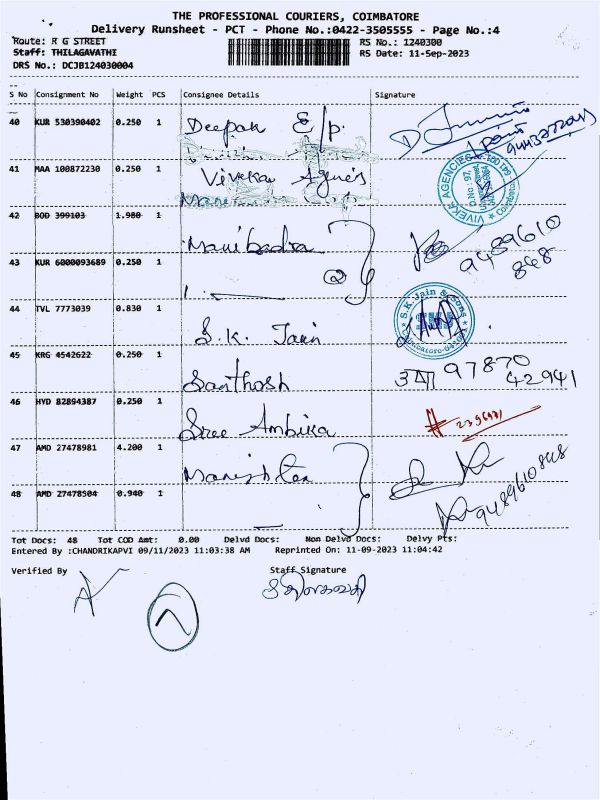 THE PROFESSIONAL COURIERS, COIMBATORE
Delivery Runsheet - PCT - Phone No.:0422-3505555 - Page No.:4
Route: R G STREET
RS No.: 1240300
Staff: THILAGAVATHI
RS Date: 11-Sep-2023
DRS No.: DCJB124030004
S No Consignment No Weight PCS Consignee Details Signature
40 KUR 530390402 0.250 1 Deepak E/p.
41 MAA 100872230 0.250 1 Viveka Agnes
VIVEKA AGENCIES
Coimbatore
42 BOD 399103 1.980 1 Manibadra 9489610
868
43 KUR 6000093689 0.250 1
44 TVL 7773039 0.830 1 S.K. Jain
S.K. Jain & Sons
45 KRG 4542622 0.250 1 Santhosh 97870
42941
46 HYD 82894387 0.250 1 Sree Ambika
47 AMD 27478981 4.200 1
48 AMD 27478504 0.940 1
Tot Docs: 48 Tot COD Amt: 0.00 Delvd Docs: Non Delvd Docs: Delvy Pts:
Entered By :CHANDRIKAPVI 09/11/2023 11:03:38 AM Reprinted On: 11-09-2023 11:04:42
Verified By Staff Signature